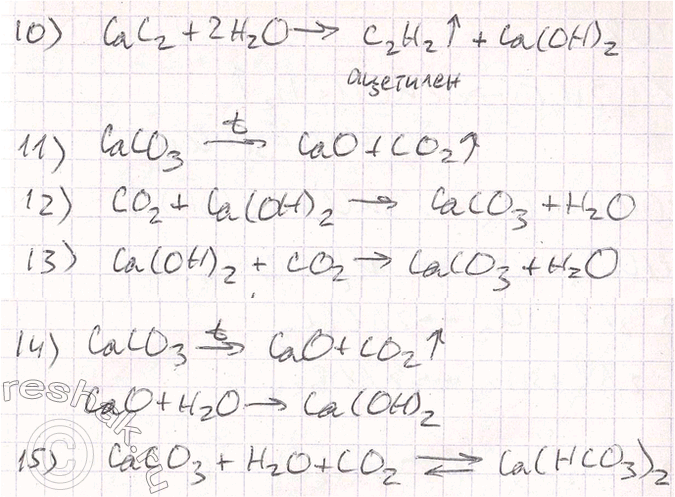 10) CaC₂ + 2H₂O → C₂H₂↑ + Ca(OH)₂
ацетилен
11) CaCO₃ t→ CaO + CO₂↑
12) CO₂ + Ca(OH)₂ → CaCO₃ + H₂O
13) Ca(OH)₂ + CO₂ → CaCO₃ + H₂O
14) CaCO₃ t→ CaO + CO₂↑
CaO + H₂O → Ca(OH)₂
15) CaCO₃ + H₂O + CO₂ ⇄ Ca(HCO₃)₂
reshak.ru
©